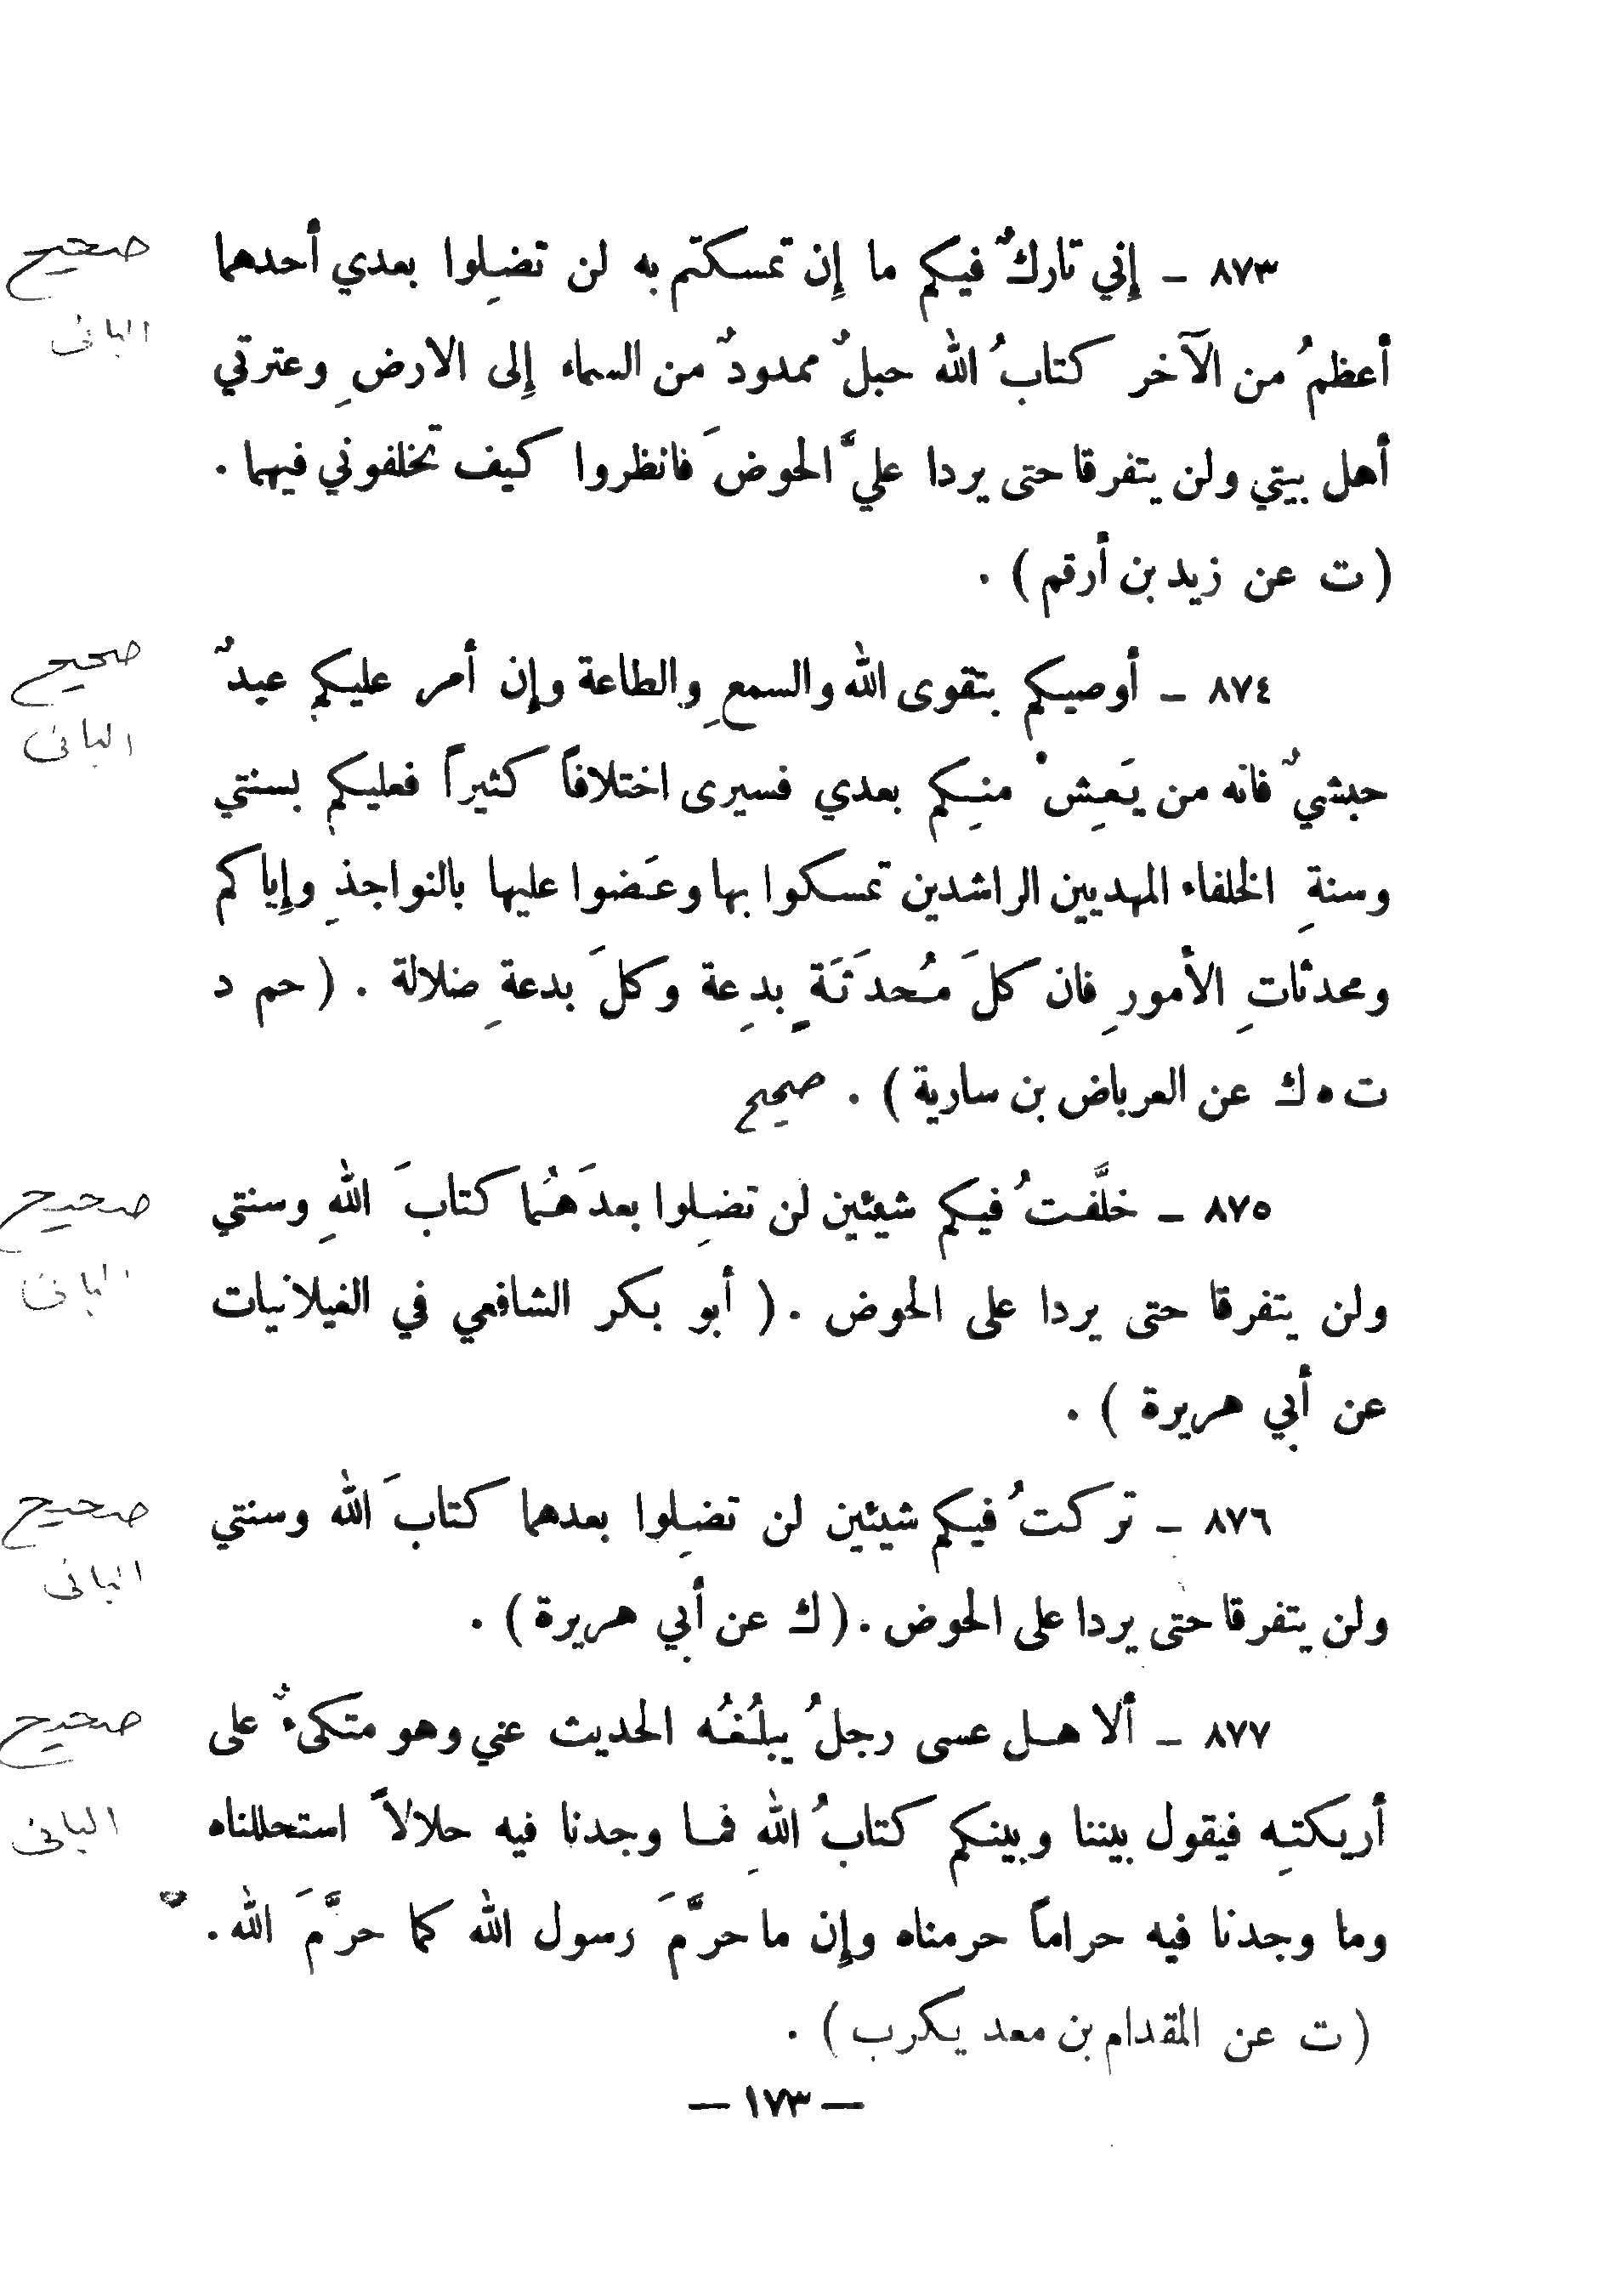 ٨٧٣ – إِني تاركٌ فيكم ما إِن تمسكتم به لن تضلِوا بعدي أحدهما
صحيح
البانى
أعظمُ من الآخر كتابُ الله حبلٌ ممدودٌ من السماء إِلى الارضِ وعترتي
أهل بيتي ولن يتفرقا حتى يردا عليَّ الحوضَ فانظروا كيف تخلفوني فيهما .
( ت عن زيد بن أرقم ) .
٨٧٤ – أوصيكم بتقوى الله والسمعِ والطاعة وإِن أمر عليكم عبدٌ
صحيح
البانى
حبشيٌ فانه من يَعِشْ منِكم بعدي فسيرى اختلافاً كثيراً فعليكم بسنتي
وسنةِ الخلفاء المهديين الراشدين تمسكوا بها وعَضوا عليها بالنواجذِ وإِياكم
ومحدثاتِ الأمورِ فان كلَ مُحدَثَةٍ بدِعة وكلَ بدعةِ ضلالة . ( حم د
ت ه ك عن العرباض بن سارية ) . صحيح
٨٧٥ – خلَّفتُ فيكم شيئين لن تضلِوا بعدَهُما كتابَ اللهِ وسنتي
صحيح
البانى
ولن يتفرقا حتى يردا على الحوض . ( أبو بكر الشافعي في الغيلانيات
عن أبي هريرة ) .
٨٧٦ – تركتُ فيكم شيئين لن تضلِوا بعدهما كتابَ الله وسنتي
صحيح
البانى
ولن يتفرقا حتى يردا على الحوض . ( ك عن أبي هريرة ) .
٨٧٧ – ألا هل عسى رجلُ يبلُغُه الحديث عني وهو متكىءٌ على
صحيح
البانى
أريكتِه فيقول بيننا وبينكم كتابُ اللهِ فما وجدنا فيه حلالاً استحللناه
وما وجدنا فيه حراماً حرمناه وإِن ما حرَّمَ رسول الله كما حرَّمَ الله .
( ت عن المقدام بن معد يكرب ) .
– ١٧٣ –